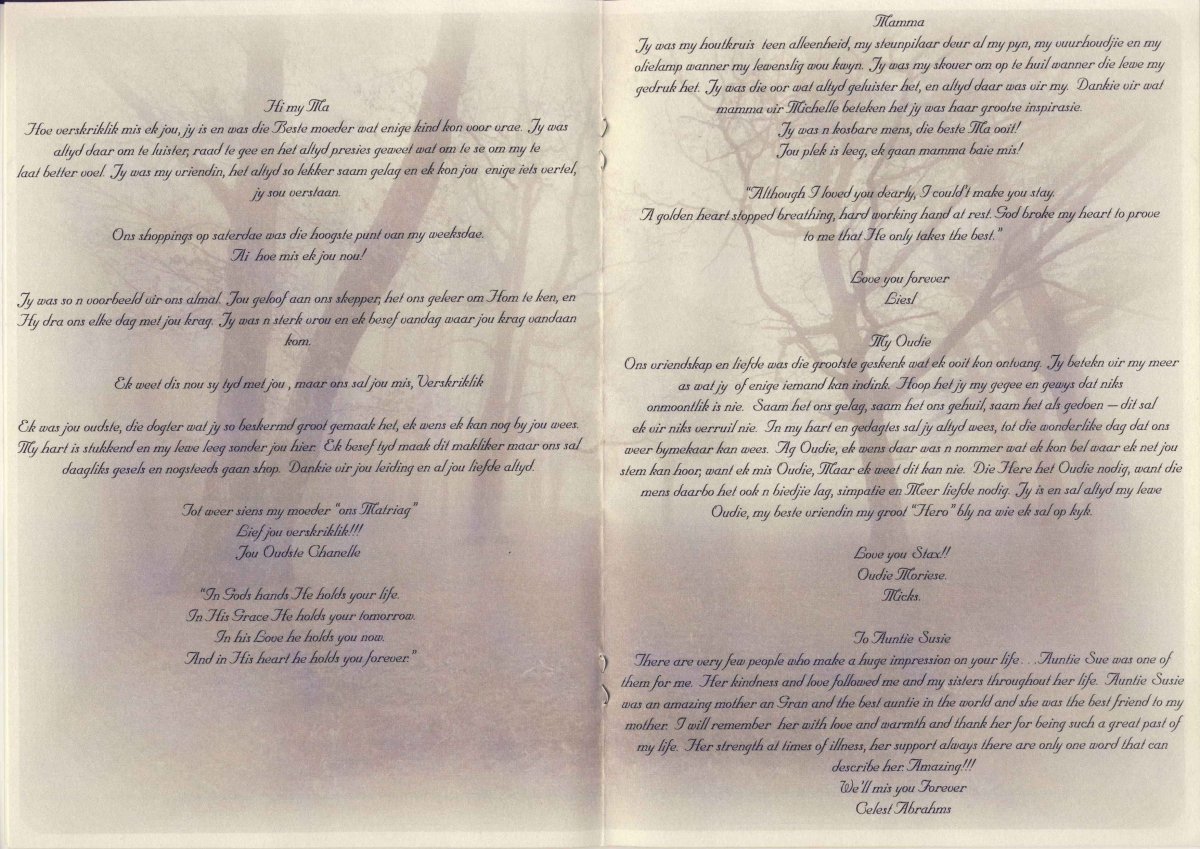 Hi my Ma
Hoe verskriklik mis ek jou, jy is en was die Beste moeder wat enige kind kon voor vrae. Jy was
altyd daar om te luister, raad te gee en het altyd presies geweet wat om te se om my te
laat better voel. Jy was my vriendin, het altyd so lekker saam gelag en ek kon jou enige iets vertel,
jy sou verstaan.
Ons shoppings op saterdae was die hoogste punt van my weeksdae.
Ai hoe mis ek jou nou!
Jy was so n voorbeeld vir ons almal. Jou geloof aan ons skepper, het ons geleer om Hom te ken, en
Hy dra ons elke dag met jou krag. Jy was n sterk vrou en ek besef vandag waar jou krag vandaan
kom.
Ek weet dis nou sy tyd met jou , maar ons sal jou mis, Verskriklik
Ek was jou oudste, die dogter wat jy so beskermd groot gemaak het, ek wens ek kan nog by jou wees.
My hart is stukkend en my lewe leeg sonder jou hier. Ek besef tyd maak dit makliker maar ons sal
daagliks gesels en nogsteeds gaan shop. Dankie vir jou leiding en al jou liefde altyd.
Tot weer siens my moeder "ons Matriag"
Lief jou verskriklik!!!
Jou Oudste Chanelle
"In Gods hands He holds your life.
In His Grace He holds your tomorrow.
In his Love he holds you now.
And in His heart he holds you forever."
Mamma
Jy was my houtkruis teen alleenheid, my steunpilaar deur al my pyn, my vuurhoudjie en my
olielamp wanner my lewenslig wou kwyn. Jy was my skouer om op te huil wanner die lewe my
gedruk het. Jy was die oor wat altyd geluister het, en altyd daar was vir my. Dankie vir wat
mamma vir Michelle beteken het jy was haar grootse inspirasie.
Jy was n kosbare mens, die beste Ma ooit!
Jou plek is leeg, ek gaan mamma baie mis!
"Although I loved you dearly, I could't make you stay.
A golden heart stopped breathing, hard working hand at rest. God broke my heart to prove
to me that He only takes the best."
Love you forever
Liesl
My Oudie
Ons vriendskap en liefde was die grootste geskenk wat ek ooit kon ontvang. Jy betekn vir my meer
as wat jy of enige iemand kan indink. Hoop het jy my gegee en gewys dat niks
onmoontlik is nie. Saam het ons gelag, saam het ons gehuil, saam het als gedoen – dit sal
ek vir niks verruil nie. In my hart en gedagtes sal jy altyd wees, tot die wonderlike dag dat ons
weer bymekaar kan wees. Ag Oudie, ek wens daar was n nommer wat ek kon bel waar ek net jou
stem kan hoor, want ek mis Oudie, Maar ek weet dit kan nie. Die Here het Oudie nodig, want die
mens daarbo het ook n biedjie lag, simpatie en Meer liefde nodig. Jy is en sal altyd my lewe
Oudie, my beste vriendin my groot "Hero" bly na wie ek sal op kyk.
Love you Stax!!
Oudie Moriese.
Micks.
To Auntie Susie
There are very few people who make a huge impression on your life...Auntie Sue was one of
them for me. Her kindness and love followed me and my sisters throughout her life. Auntie Susie
was an amazing mother an Gran and the best auntie in the world and she was the best friend to my
mother. I will remember her with love and warmth and thank her for being such a great past of
my life. Her strength at times of illness, her support always there are only one word that can
describe her. Amazing!!!
We'll mis you Forever
Celest Abrahms